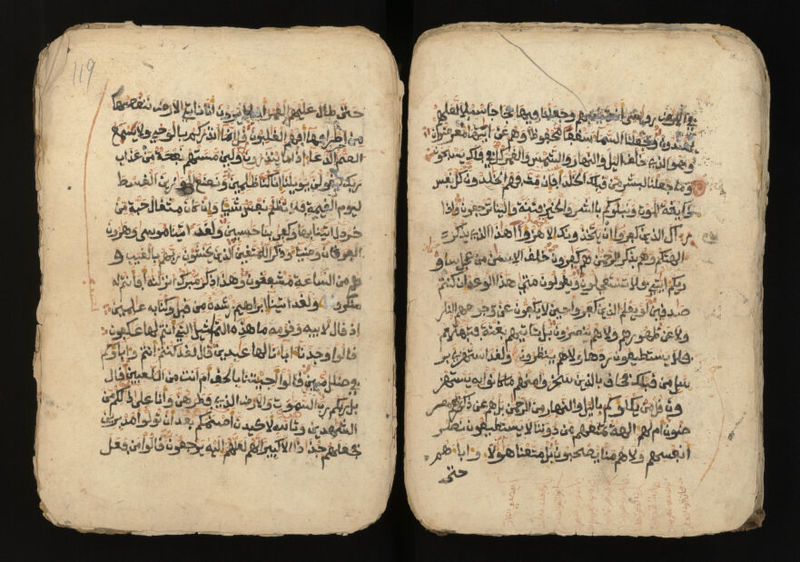 في الارض روسي ان تميد بهم وجعلنا فيها فجاجا سبلا لعلهم
يهتدون وجعلنا السما سقفا محفوظا وهم عن ايتها معرضون
وهو الذي خلق اليل والنهار والشمس والقمر كل في فلك يسبحون
وما جعلنا لبشر من قبلك الخلد افاين مت فهم الخلدون كل نفس
ذايقة الموت ونبلوكم بالشر والخير فتنة والينا ترجعون واذا
راك الذين كفروا ان يتخذونك الا هزوا اهذا الذي يذكر
الهتكم وهم بذكر الرحمن هم كفرون خلق الانسن من عجل ساو
ريكم ايتي فلا تستعجلون ويقولون متى هذا الوعد ان كنتم
صدقين لو يعلم الذين كفروا حين لا يكفون عن وجوههم النار
ولا عن ظهورهم ولا هم ينصرون بل تاتيهم بغتة فتبهتهم
فلا يستطيعون ردها ولا هم ينظرون ولقد استهزي بر
سل من قبلك فحاق بالذين سخروا منهم ما كانوا به يستهز
ون قل من يكلوكم باليل والنهار من الرحمن بل هم عن ذكر ربهم معر
ضون ام لهم الهة تمنعهم من دوننا لا يستطيعون نصر
انفسهم ولا هم منا يصحبون بل متعنا هولا واباهم
حتى
119
حتى طال عليهم العمر افلا يرون انا ناتي الارض ننقصها
من اطرافها افهم الغلبون قل انما انذركم بالوحي ولا يسمع
الصم الدعا اذا ما ينذرون ولين مستهم نفحة من عذاب
ربك ليقولن يويلنا انا كنا ظلمين ونضع الموزين القسط
ليوم القيمة فلا تظلم نفس شيا وان كان مثقال حبة من
خردل اتينا بها وكفى بنا حسبين ولقد اتينا موسى وهرون
الفرقان وضيا وذكرا للمتقين الذين يخشون ربهم بالغيب و
هم من الساعة مشفقون وهذا ذكر مبرك انزلنه افانتم له
منكرون ولقد اتينا ابرهيم رشده من قبل وكنا به علمين
اذ قال لابيه وقومه ما هذه التماثيل التي انتم لها عكفون
قالوا وجدنا ابانا لها عبدين قال لقد كنتم انتم واباوكم
في ضلل مبين قالوا اجيتنا بالحق ام انت من اللعبين قال
بل ربكم رب السموت والارض الذي فطرهن وانا على ذلكم من
الشهدين وتالله لاكيدن اصنمكم بعد ان تولوا مدبرين
فجعلهم جذذا الا كبيرا لهم لعلهم اليه يرجعون قالوا من فعل